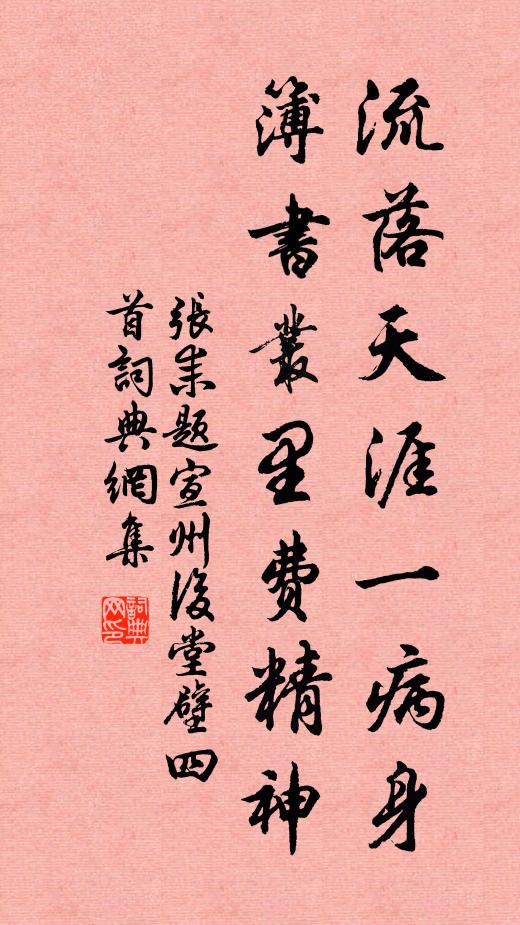 流落天涯一病身
簿書叢里費精神
張耒題宣州後堂壁四
首詞典網集
詞典
网印